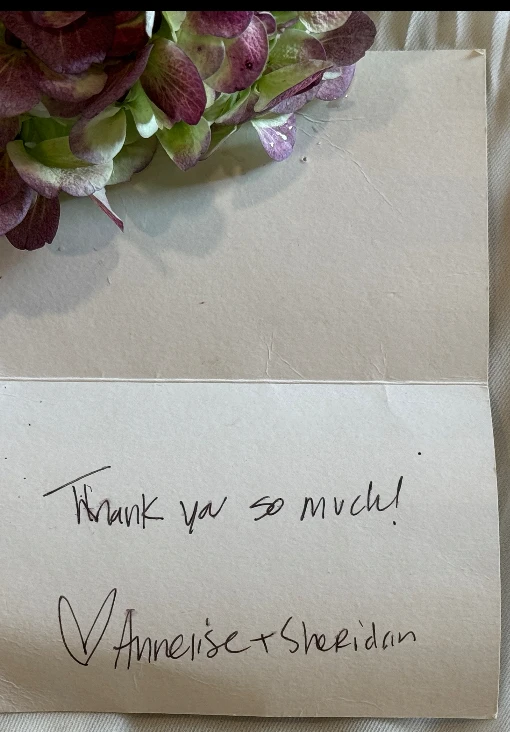 Thank you so much!
♡ Annelise + Sheridan